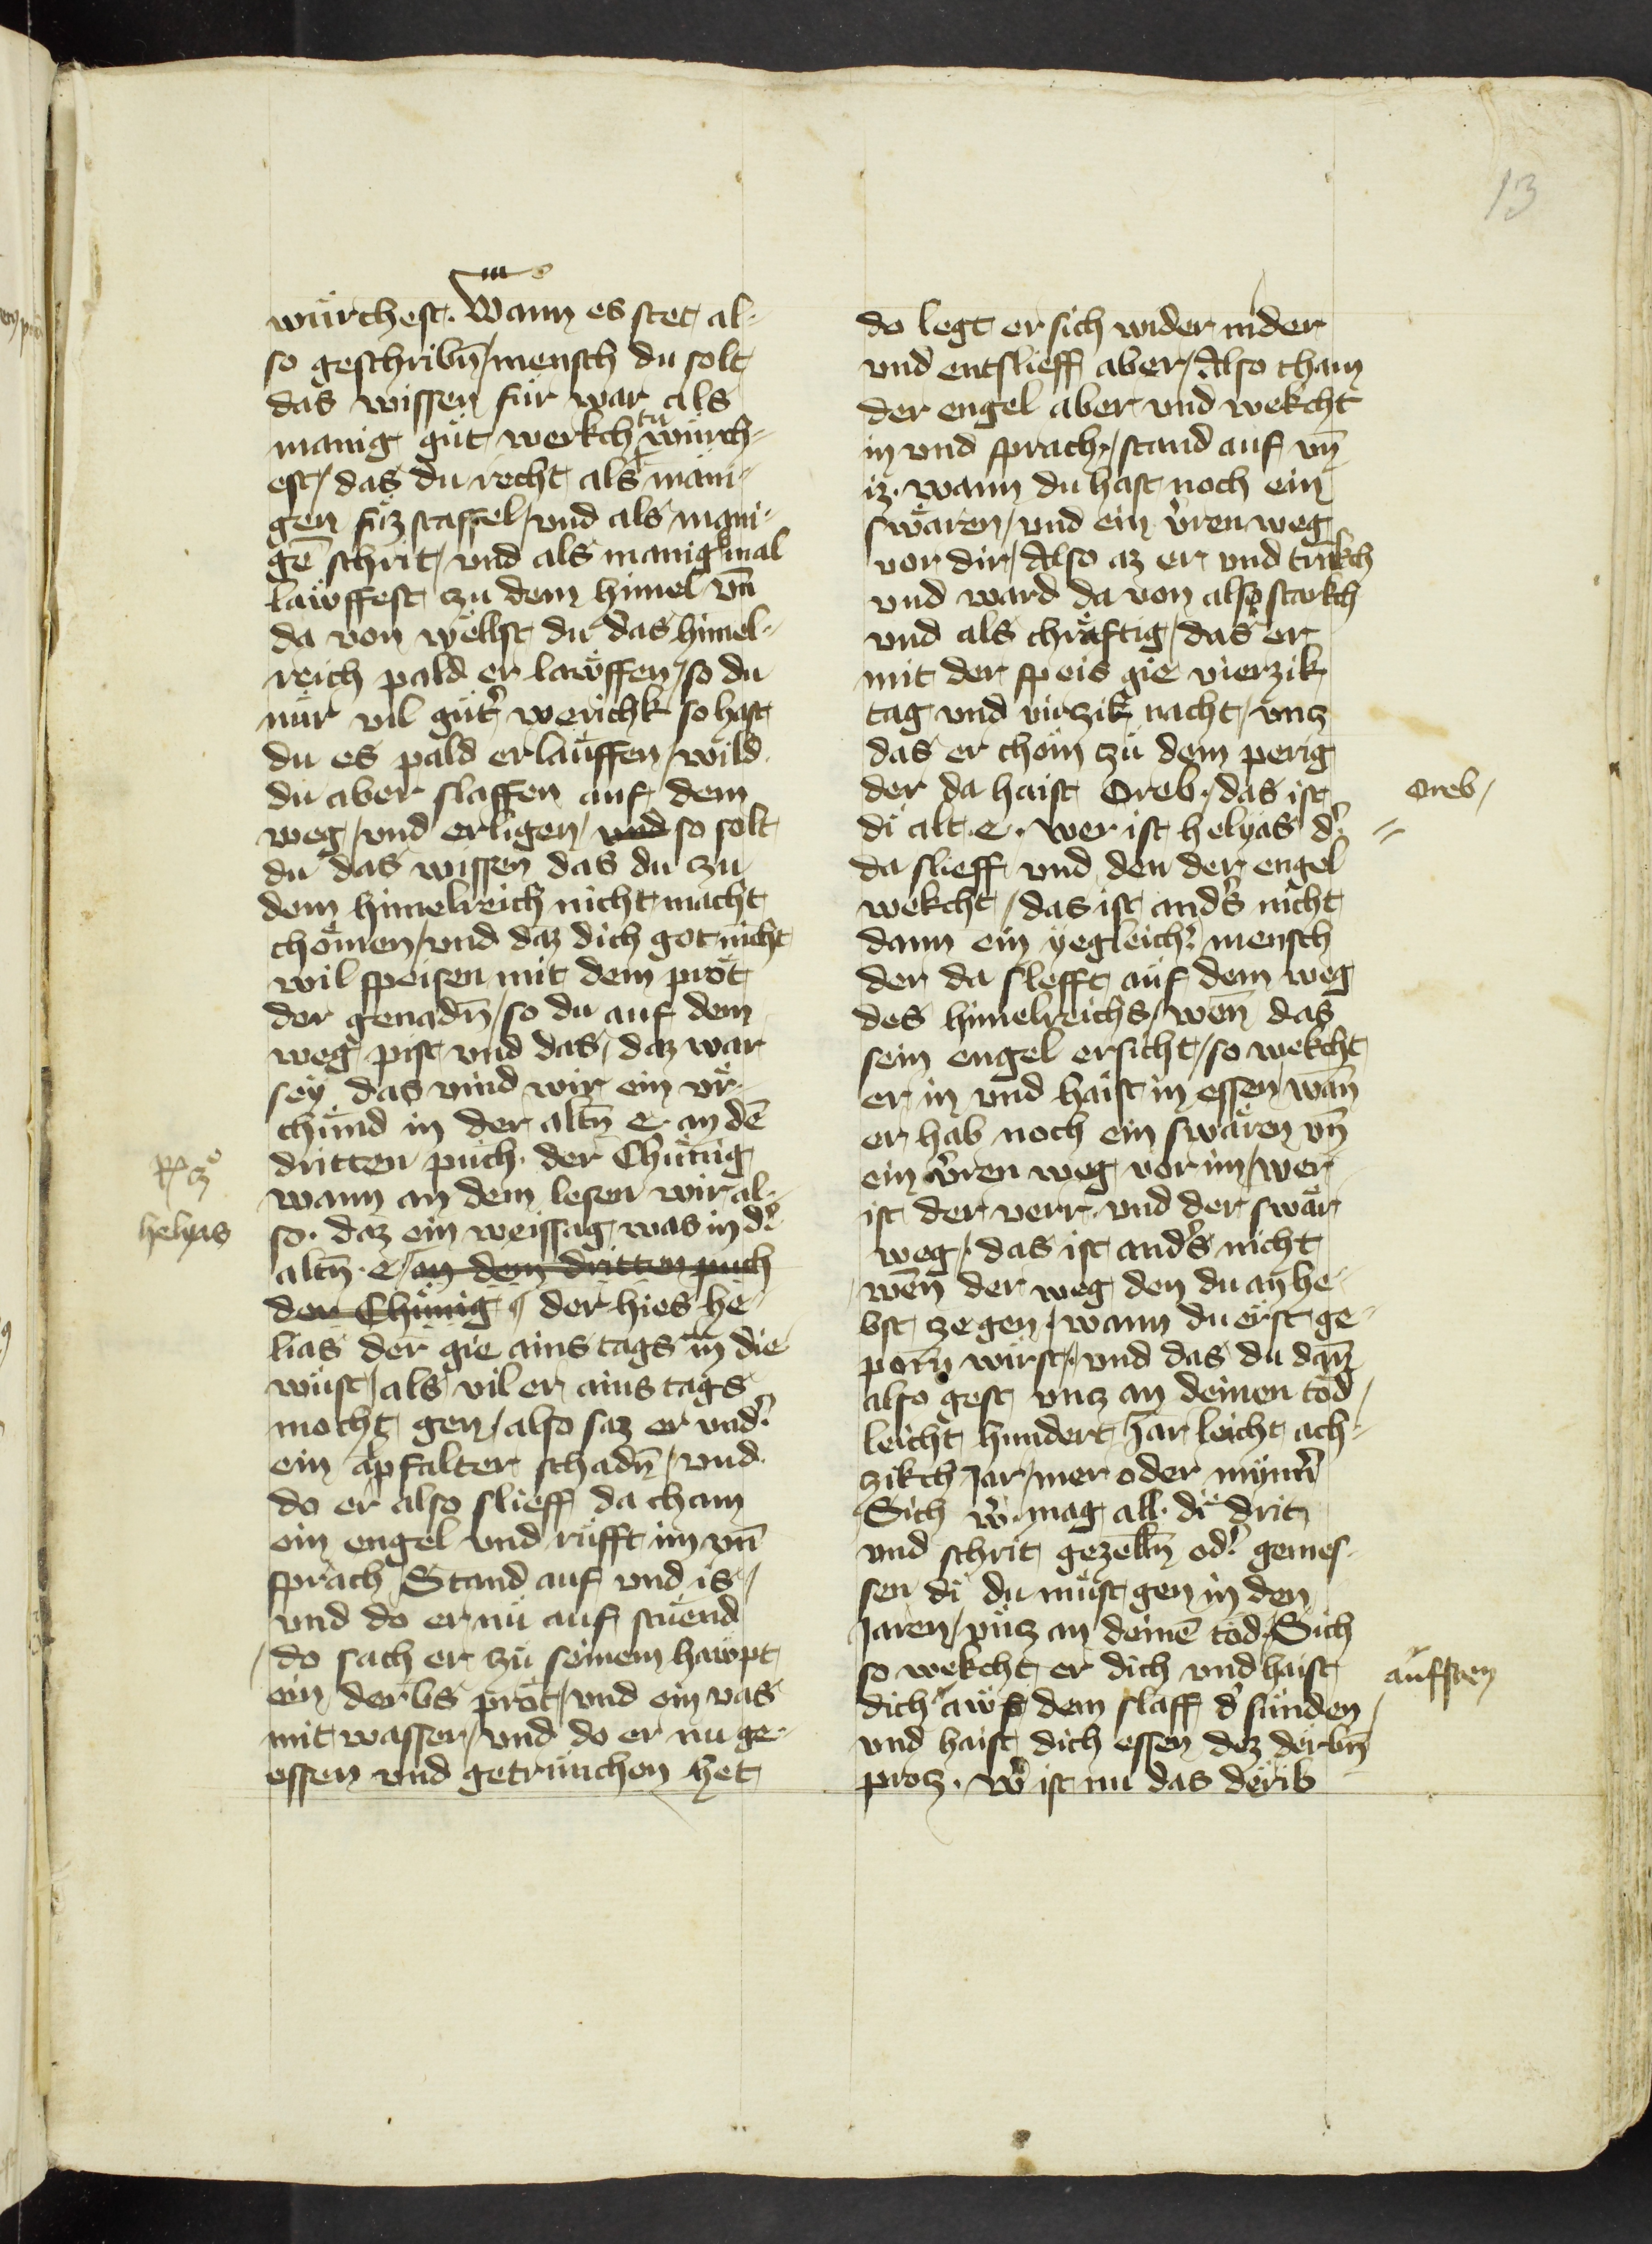 13
würchest. Wann es stet al-
so geschribn̄/ mensch du solt
das wissen für war als
manig güt werkch tu würch-
est/ das du recht als mani-
gen füzstaffel/ vnd als mani-
gē schrit/ vnd als manigmal
lawffest zu dem himel vn̄
da von wellst du das himel-
reich pald er lawffen/ so du
nür vil gütˀ werichk so hast
du es pald erlauffen/ wild
du aber slaffen auf dem
weg/ vnd erligen/ vnd so solt
du das wissen das du zu
dem himelreich nicht macht
chömen/ vnd daz dich got nicht
wil speisen mit dem prot
der genadn̄/ so du auf dem
weg pist vnd das/ daz war
sey das vind wir ein vr-
chund in der altn̄ e. an dē
dritten puch. der Chünig
wann an dem lesen wir al-
so. daz ein weissag was in dˀ
altn̄. e/ an dem dritten puch
der Chünig der hies he-
lias der gie ains tags in die
wüst/ als vil er ains tags
mocht gen/ also saz er vndˀ
ein apfalter schadn̄/ vnd
do er also slieff da cham
ein engel vnd rüfft im vn̄
sprach Stand auf vnd is/
vnd do er nü auf stuend
do sach er zü seinem hawpt
ein derbs prot/ vnd ein vas
mit wasser/ vnd do er nu ge-
essen vnd getrünchen het
helyas
do legt er sich wider nider
vnd entslieff aber/ Also cham
der engel aber vnd wekcht
in vnd sprach/ stand auf vn̄
iz. wann du hast noch ein
swären/ vnd ein vˀren weg
vor dir/ Also az er vnd trākch
vnd ward da von also starkch
vnd als chräftig/ das er
mit der speis gie vierzik
tag vnd virzik nacht/ vnz
das er chöm zü dem perig
der da haist Oreb./ das ist
di alt. e. wer ist helyas dˀ
da slieff vnd den der engel
wekcht/ das ist andˀs nicht
dann ein yegleichˀ mensch
der da slefft auf dem weg
des himelreichs/ wen̄ das
sein engel ersicht/ so wekcht
er in vnd haist in essen/ wan̄
er hab noch ein swären vn̄
ein vˀren weg vor im/ wer
ist der verr. vnd der swär
weg/ das ist andˀs nicht
wen̄ der weg den du an he-
bst ze gen/ wann du erst ge-
porn̄ wirst/ vnd das du dan̄
also gest vnz an deinen tod/
leicht hundert Jar leicht ach-
zikch Jar/ mer oder myn̄ˀ
Sich wˀ mag all. di drit
vnd schrit gezelln̄ odˀ gemes-
sen di du müst gen in den
Jaren/ vnz an deinē tod/ Sich
so wekcht er dich vnd haist
dich aws dem slaff dˀ sünden
vnd haist dich essen dez derbn̄
protz. wˀ ist nu das derib
Oreb/
aufsten